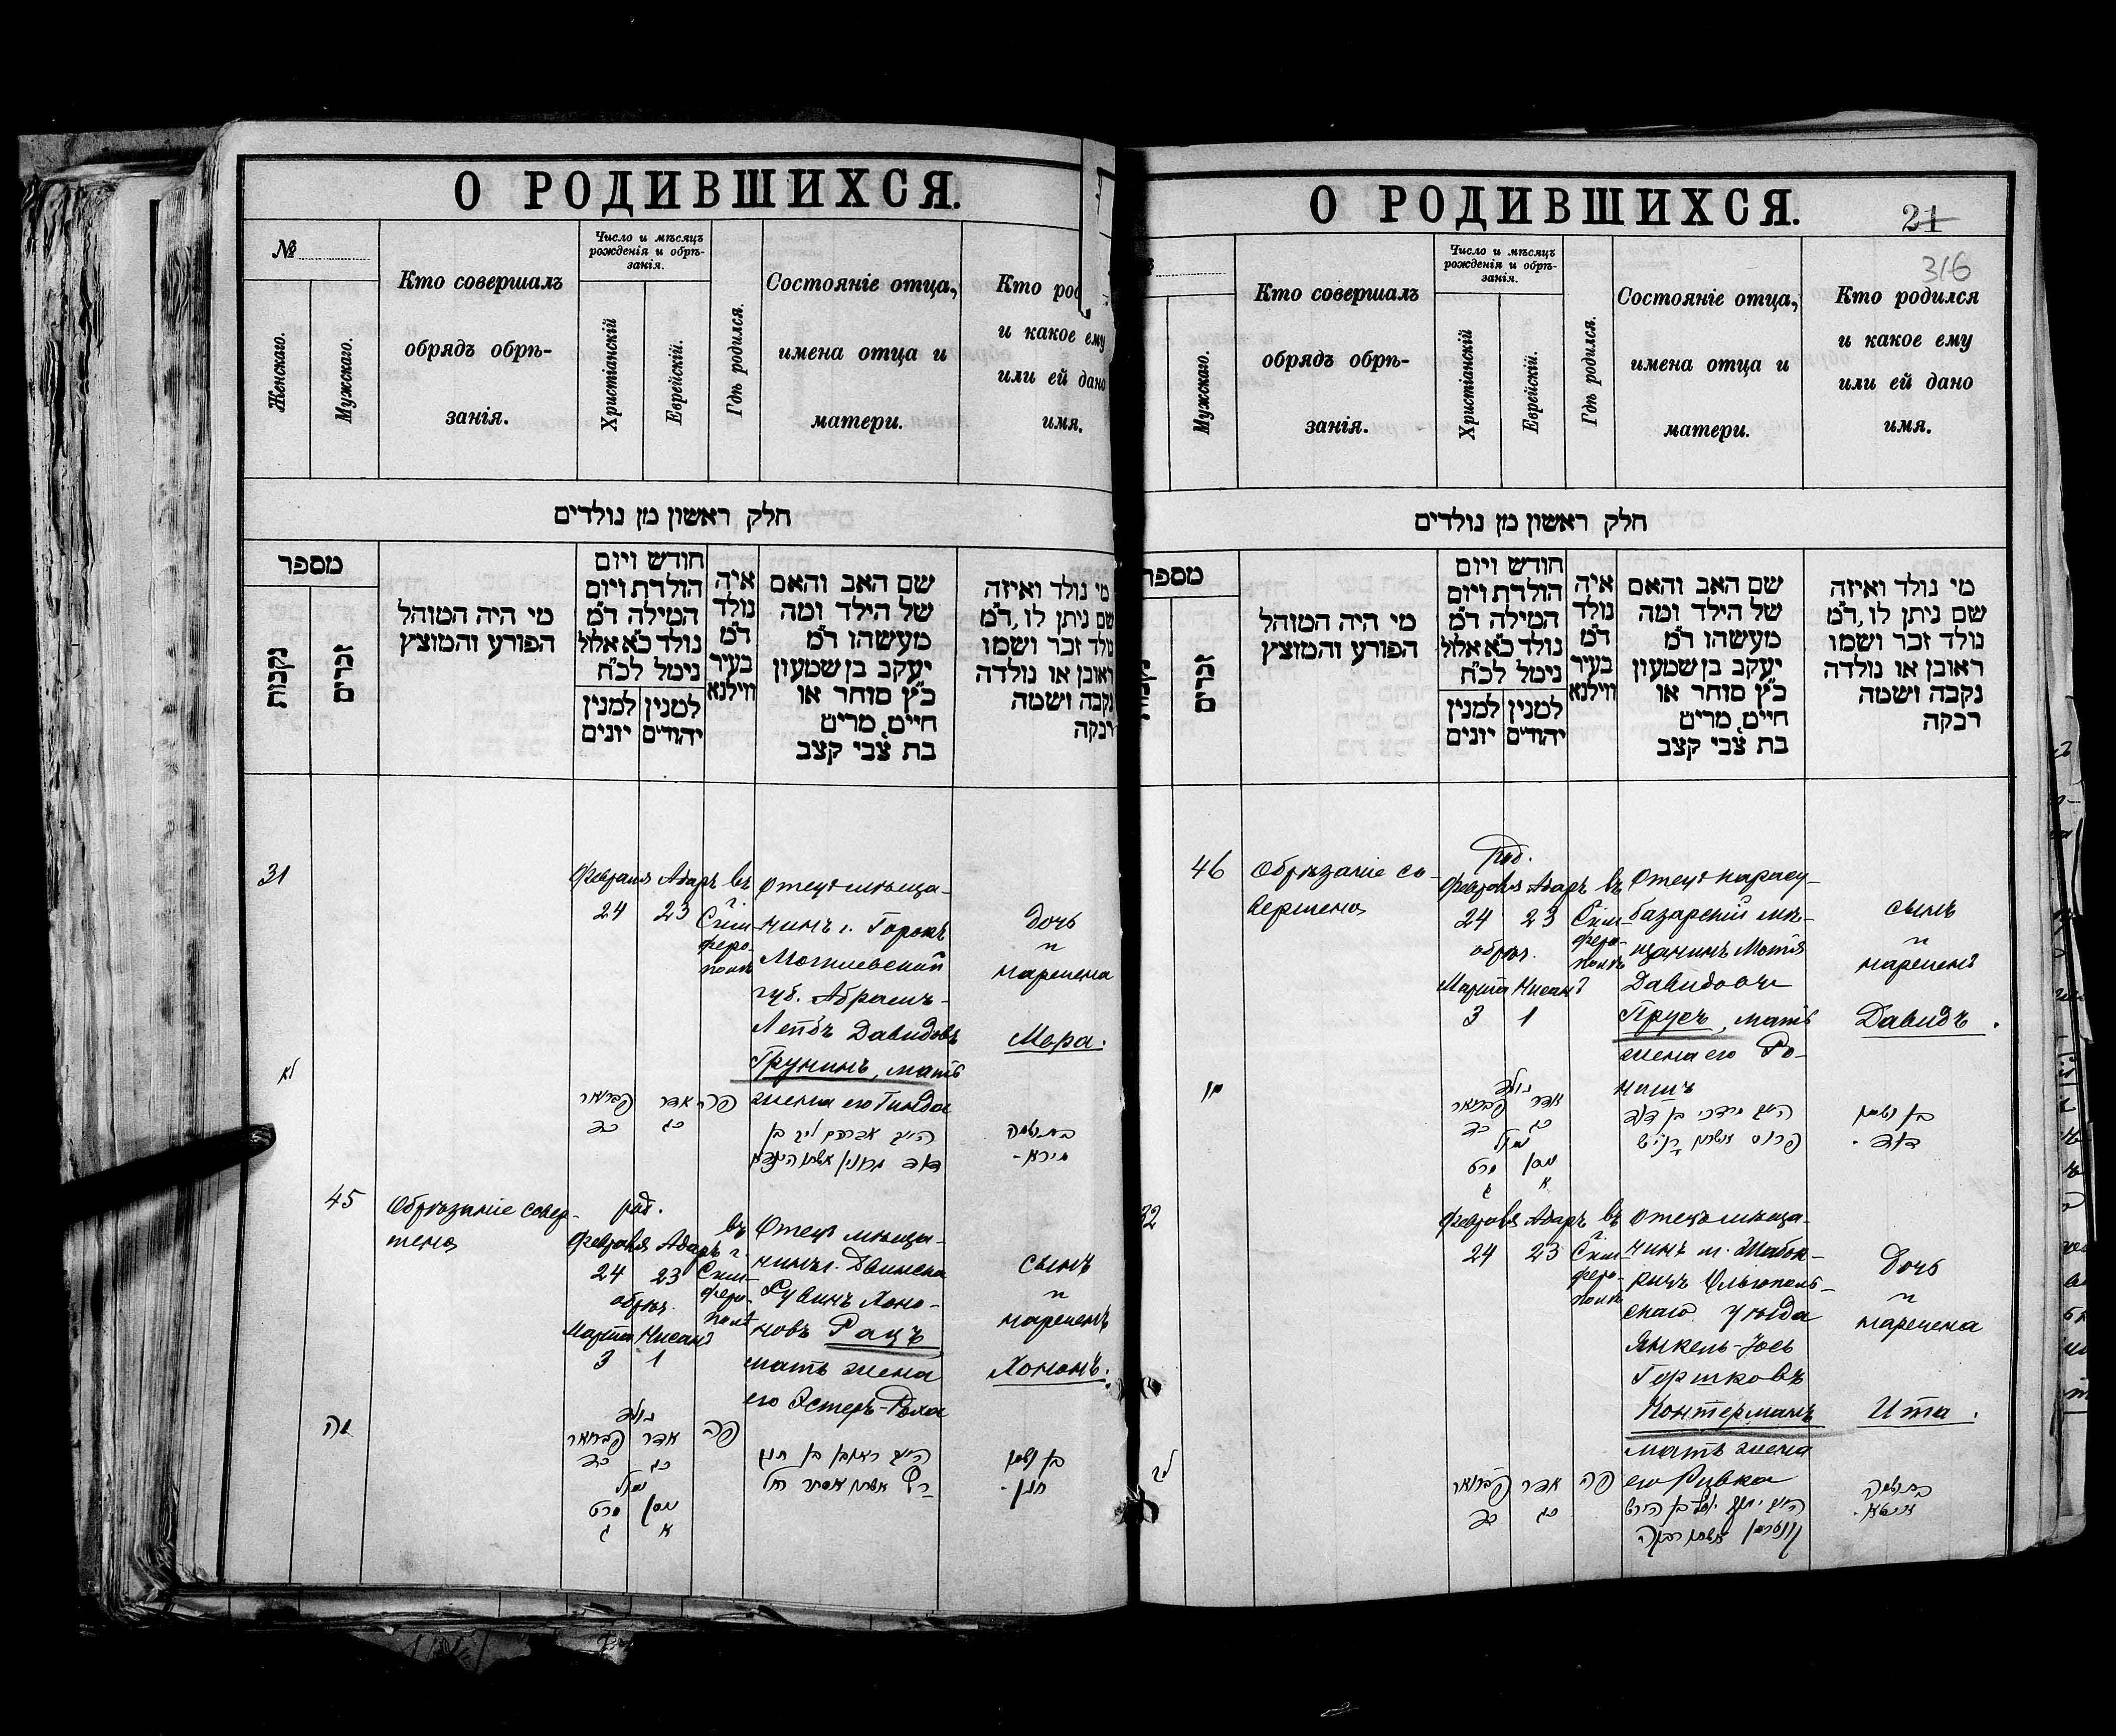 О РОДИВШИХСЯ.
№
Женскаго.
Мужскаго.
Кто совершалъ
обрядъ обрѣ-
занія.
Число и мѣсяцъ
рожденія и обрѣ-
занія.
Христіанскій
Еврейскій.
Гдѣ родился.
Состояніе отца,
имена отца и
матери.
Кто род
и какое ему
или ей дано
имя.
חלק ראשון מן נולדים
מספר
נקבות
זכרים
מי היה המוהל
הפורע והמוצץ
חודש ויום
הולדת ויום
המילה ד״מ
נולד כ״א אלול
נימל לכ״ח
למנין
יונים
למנין
יהודים
איה
נולד
ד״מ
בעיר
ווילנא
שם האב והאם
של הילד ומה
מעשהו ד״מ
יעקב בן שמעון
כ״ץ סוחר או
חיים, מרים
בת צבי קצב
מי נולד ואיזה
שם ניתן לו, ד״מ
נולד זכר ושמו
ראובן או נולדה
נקבה ושמה
רבקה
31
Февраля Адаръ
24 23
въ
г.
Сим-
феро-
полѣ
Отецъ мѣща-
нинъ г. Горокъ
Могилевской
губ. Абрамъ-
Лейбъ Давидовъ
Грунинъ, мать
жена его Гинда
дочь
и
наречена
Мера.
לא
פברואר אדר פה
כד כג
בת ושמה
מירא.
45
Обрѣзаніе совер-
шено
род.
Февраля Адаръ
24 23
обрѣз.
Марта Нисанъ
3 1
въ
г.
Сим-
феро-
полѣ
Отецъ мѣща-
нинъ г. Двинска
Рувинъ Хоно-
новъ Рацъ
мать жена
его Эстеръ-Роха
сынъ
и
нареченъ
Хононъ.
מה
נולד
פברואר אדר פה
כד כג
נמול
מרט ניסן
ג א
בן ושמו
חנן.
О РОДИВШИХСЯ.
21
316
Мужскаго.
Кто совершалъ
обрядъ обрѣ-
занія.
Число и мѣсяцъ
рожденія и обрѣ-
занія.
Христіанскій
Еврейскій.
Гдѣ родился.
Состояніе отца,
имена отца и
матери.
Кто родился
и какое ему
или ей дано
имя.
חלק ראשון מן נולדים
מספר
זכרים
מי היה המוהל
הפורע והמוצץ
חודש ויום
הולדת ויום
המילה ד״מ
נולד כ״א אלול
נימל לכ״ח
למנין
יונים
למנין
יהודים
איה
נולד
ד״מ
בעיר
ווילנא
שם האב והאם
של הילד ומה
מעשהו ד״מ
יעקב בן שמעון
כ״ץ סוחר או
חיים, מרים
בת צבי קצב
מי נולד ואיזה
שם ניתן לו, ד״מ
נולד זכר ושמו
ראובן או נולדה
נקבה ושמה
רבקה
46
Обрѣзаніе со-
вершено
Род.
Февраля Адаръ
24 23
обрѣз.
Марта Нисанъ
3 1
въ
г.
Сим-
феро-
полѣ
Отецъ карасу-
базарскій мѣ-
щанинъ
Давидовъ
Прусъ, мать
жена его
сынъ
и
нареченъ
Давидъ.
מו
נולד
פברואר אדר
כד כג
נמול
מרט ניסן
ג א
בן ושמו
דוד.
32
Февраля Адаръ
24 23
въ
г.
Сим-
феро-
полѣ
Отецъ мѣща-
нинъ м. Шабок-
ричъ Ольгополь-
скаго уѣзда
Янкель-Іось
Гершковъ
Контерманъ
мать жена
его Ривка
дочь
и
наречена
Ита.
לב
פברואר אדר פה
כד כג
בת ושמה
איטא.